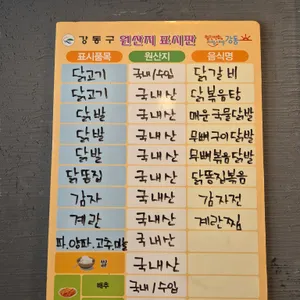 강동구 원산지 표시판
표시품목 원산지 음식명
닭고기 국내/수입 닭갈비
닭고기 국내산 닭볶음탕
닭발 국내산 매운국물닭발
닭발 국내산 무뼈구이닭발
닭발 국내산 무뼈볶음닭발
닭똥집 국내산 닭똥집볶음
감자 국내산 감자전
계란 국내산 계란찜
파,양파,고추,마늘 국내산
쌀 국내산
배추 국내/수입